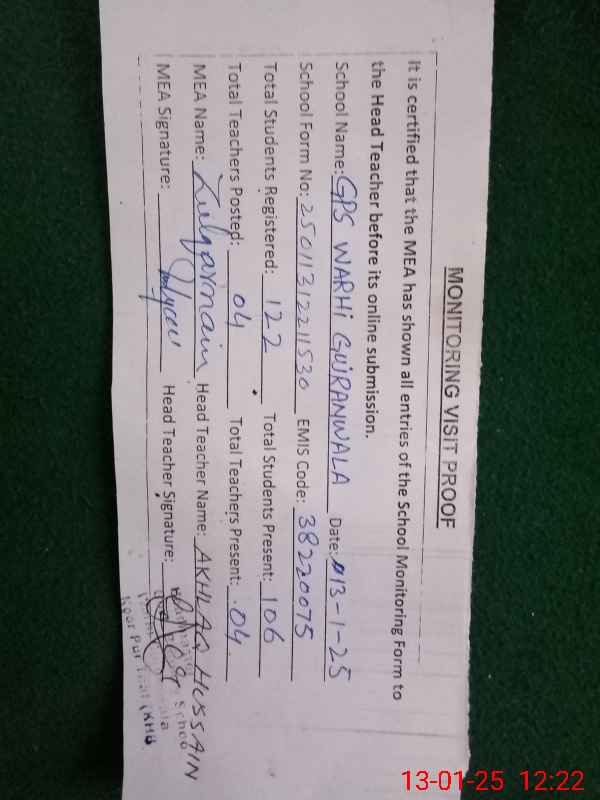 MONITORING VISIT PROOF
It is certified that the MEA has shown all entries of the School Monitoring Form to
the Head Teacher before its online submission.
School Name: GPS WARHI GUJRANWALA Date: 13-1-25
School Form No: 25011312211530 EMIS Code: 38220075
Total Students Registered: 122 Total Students Present: 106
Total Teachers Posted: 04 Total Teachers Present: 04
MEA Name: Zulqarnain Head Teacher Name: AKHLAQ HUSSAIN
MEA Signature: Head Teacher Signature:
School
Near Pul
13-01-25 12:22